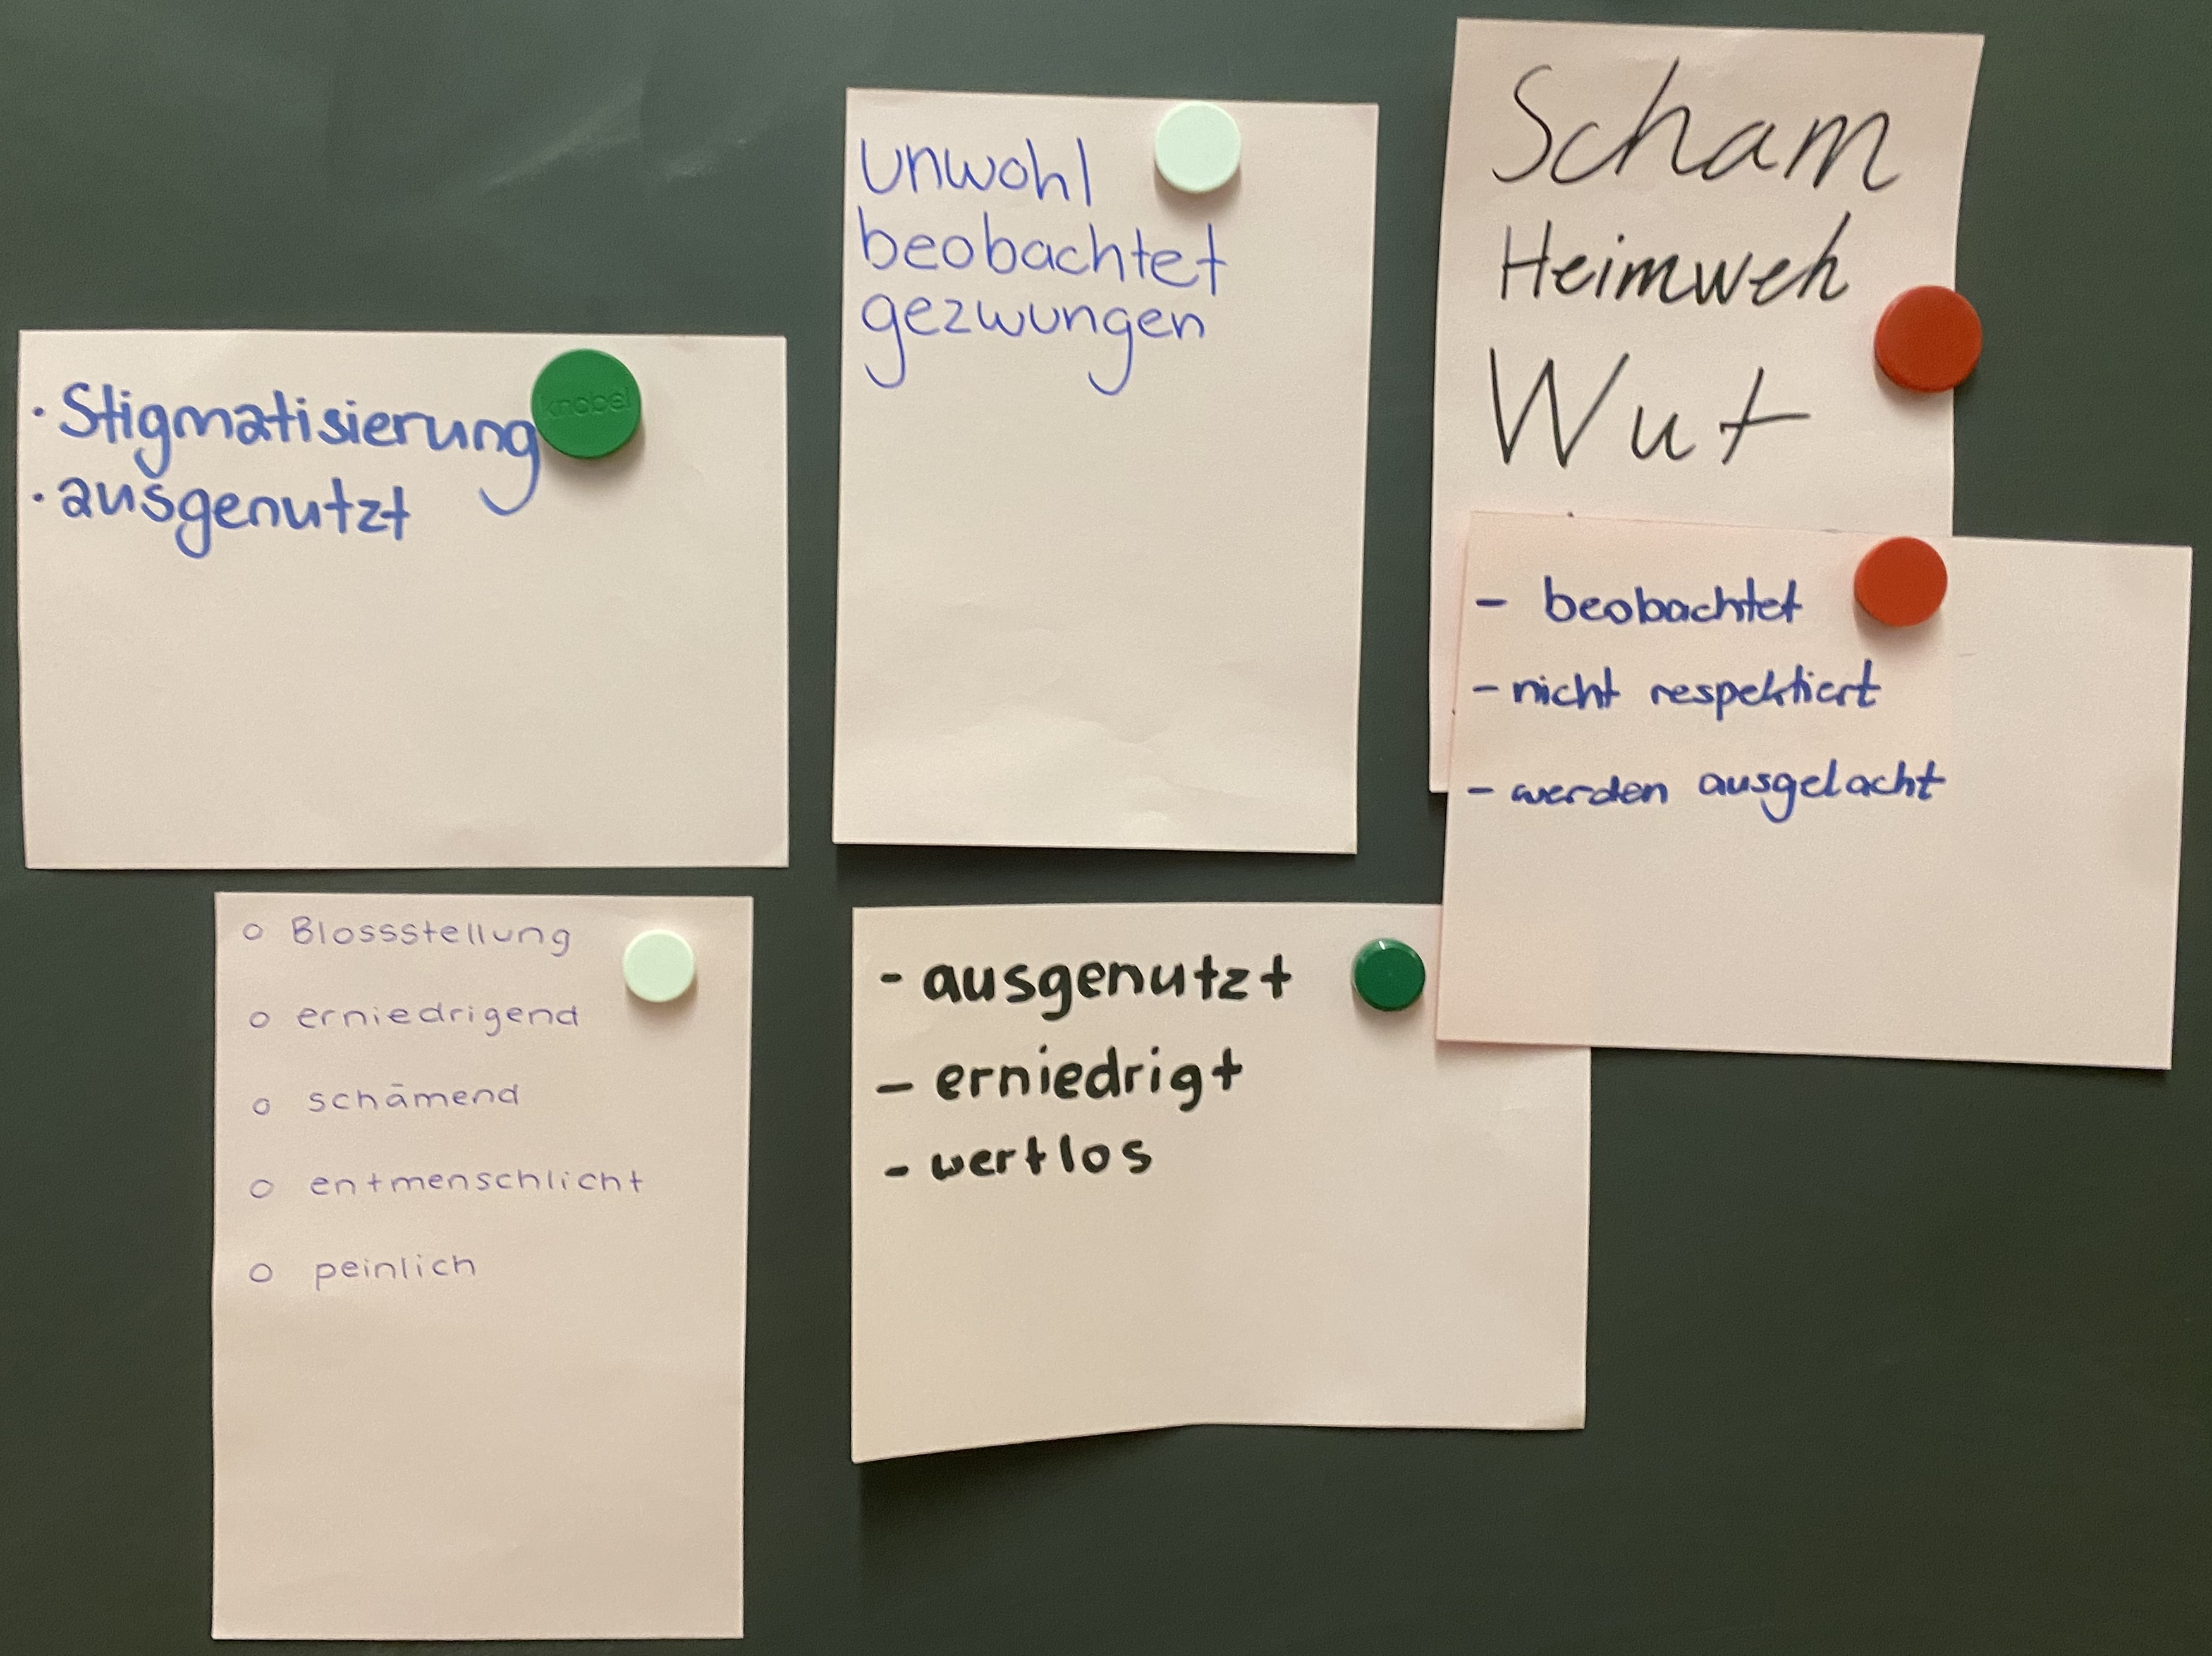 · Stigmatisierung
· ausgenutzt
knobel
unwohl
beobachtet
gezwungen
Scham
Heimweh
Wut
- beobachtet
- nicht respektiert
- werden ausgelacht
o Blossstellung
o erniedrigend
o schämend
o entmenschlicht
o peinlich
- ausgenutzt
- erniedrigt
- wertlos